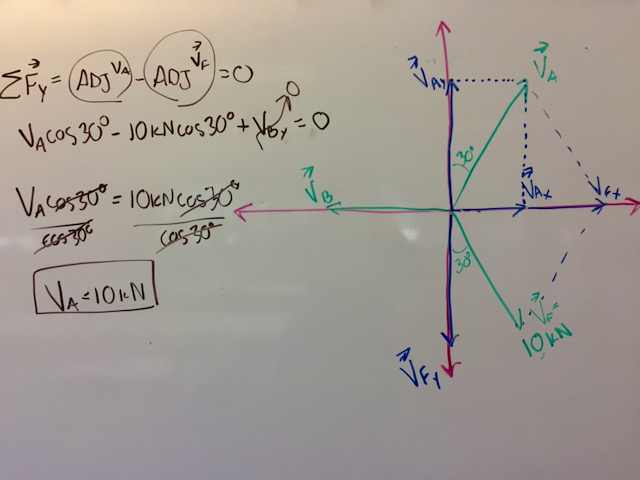 ΣF⃗y = ADJ^VA - ADJ^V⃗F = 0
VA cos30° - 10kN cos30° + VBy = 0
0
VA cos30° = 10kN cos30°
cos30° cos30°
VA = 10kN
V⃗Ay
V⃗A
30°
V⃗B
V⃗Ax
VFx
30°
V⃗F =
10kN
V⃗Fy